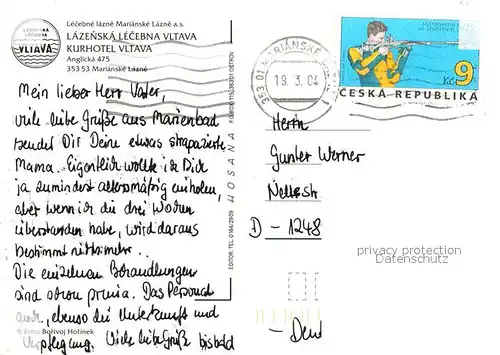 Léčebné lázně Mariánské Lázně a.s.
LÁZEŇSKÁ LÉČEBNA VLTAVA
KURHOTEL VLTAVA
Anglická 475
353 53 Mariánské Lázně
LÁZEŇSKÁ LÉČEBNA
VLTAVA
Mein lieber Herr Vater,
viele liebe Grüße aus Marienbad
sendet Dir Deine etwas strapazierte
Mama. Eigentlich wollte ich Dich
ja zumindest altersmäßig einholen,
aber wenn ich die drei Wochen
überstanden habe, wird daraus
bestimmt nichts mehr.
Die einzelnen Behandlungen
sind schon prima. Das Personal
auch, ebenso die Unterkunft und
Verpflegung. Viele liebe Grüße bis bald
© Foto: Bořivoj Hořínek
HOSANA
EDITOR: TEL. 0164/2909
353 01 MARIÁNSKÉ
19. 3. 04
Kč 9
ČESKÁ REPUBLIKA
Herrn
Gunter Werner
D - 1248
privacy protection
Datenschutz